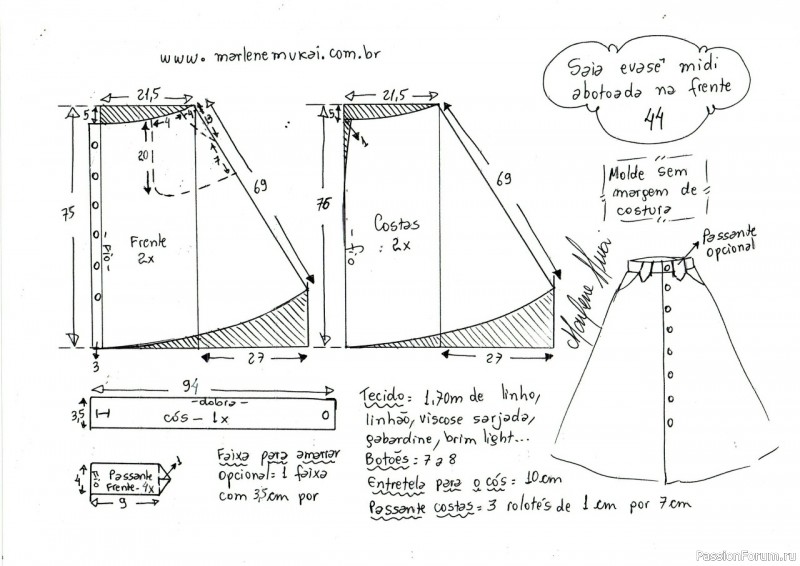 www.marlenemukai.com.br
Saia evasê midi
abotoada na frente
44
21,5
21,5
5
5
1
4
4
9
20
7
69
69
75
75
Frente
2x
Fio
Costas
2x
Fio
3
27
27
Molde sem
margem de
costura
Passante
opcional
Marlene Mukai
94
-dobra-
3,5
cós - 1x
Passante
Frente - 4x
Fio
4
9
1
Faixa para amarrar
opcional = 1 faixa
com 3,5cm por
Tecido: 1,70m de linho,
linhão, viscose sarjada,
gabardine, brim light...
Botões: 7 a 8
Entretela para o cós: 10cm
Passante costas = 3 rolotés de 1 cm por 7 cm
PassionForum.ru